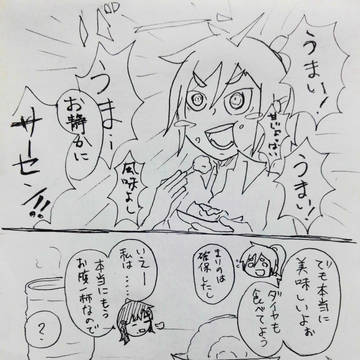 うまい!
甘じょっぱい
うまい!
うまー
お静かに
サーセン!!
風味よし
でも本当に
美味しいよぉ
ダイヤも
食べてよう
まりのは
確保したし
いえー
私は……
本当にもう
お腹一杯なので
?